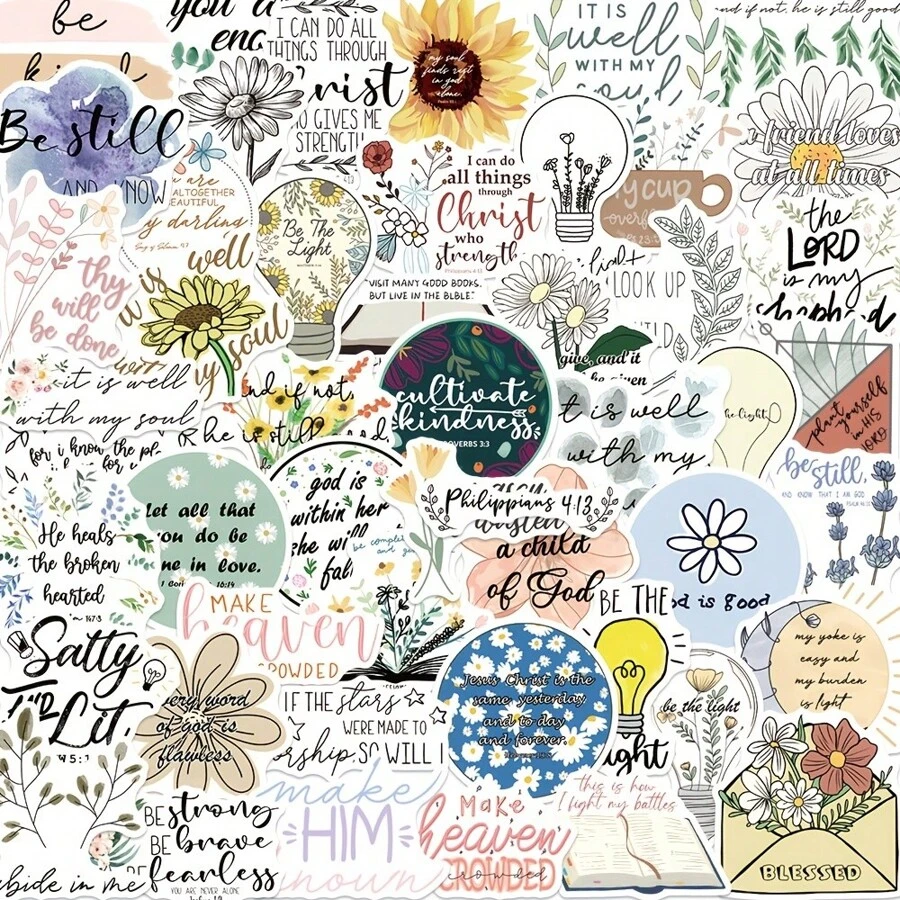 be
kind
you a
enc
I CAN DO ALL
THINGS THROUGH
rist
O GIVES ME
STRENGTH
my soul
finds rest
in god
alone
IT IS
well
WITH MY
soul
and if not, he is still good
Be still
AND KNOW
a friend loves
at all times
you are
ALTOGETHER
BEAUTIFUL
my darling
Song of Solomon 4:7
I can do
all things
through
Christ
who
strength
Philippians 4:13
my cup
overfl
PS 23:5
Be The
Light
the
LORD
is my
shepherd
thy
will
be done
it is well
with
my soul
VISIT MANY GOOD BOOKS,
BUT LIVE IN THE BIBLE.
LOOK UP
give, and it
be given
cultivate
kindness
PROVERBS 3:3
and if not,
he is still
it is well
with my soul
t is well
with my
be the light
plant
yourself
in HIS
WORD
be still,
AND KNOW THAT I AM GOD
PSALM 46:10
for i know the pl
for
let all that
you do be
ne in love.
1 Cori 16:14
god is
within her
she will
fall
be complet
Philippians 4:13
a child
of God
He heals
the broken
hearted
~ 147:3
od is good
MAKE
heaven
CROWDED
BE THE
ight
be the light
my yoke is
easy and
my burden
is light
Salty
Lit.
W 5:1
every word
of god is
flawless
IF THE stars
WERE MADE TO
orship SO WILL I
Jesus Christ is the
same yesterday,
and to day
and forever.
BE strong
BE brave
BE fearless
YOU ARE NEVER ALONE
make
HIM
known
Make
heaven
CROWDED
crowded
this is how
I fight my battles
BLESSED
abide in me